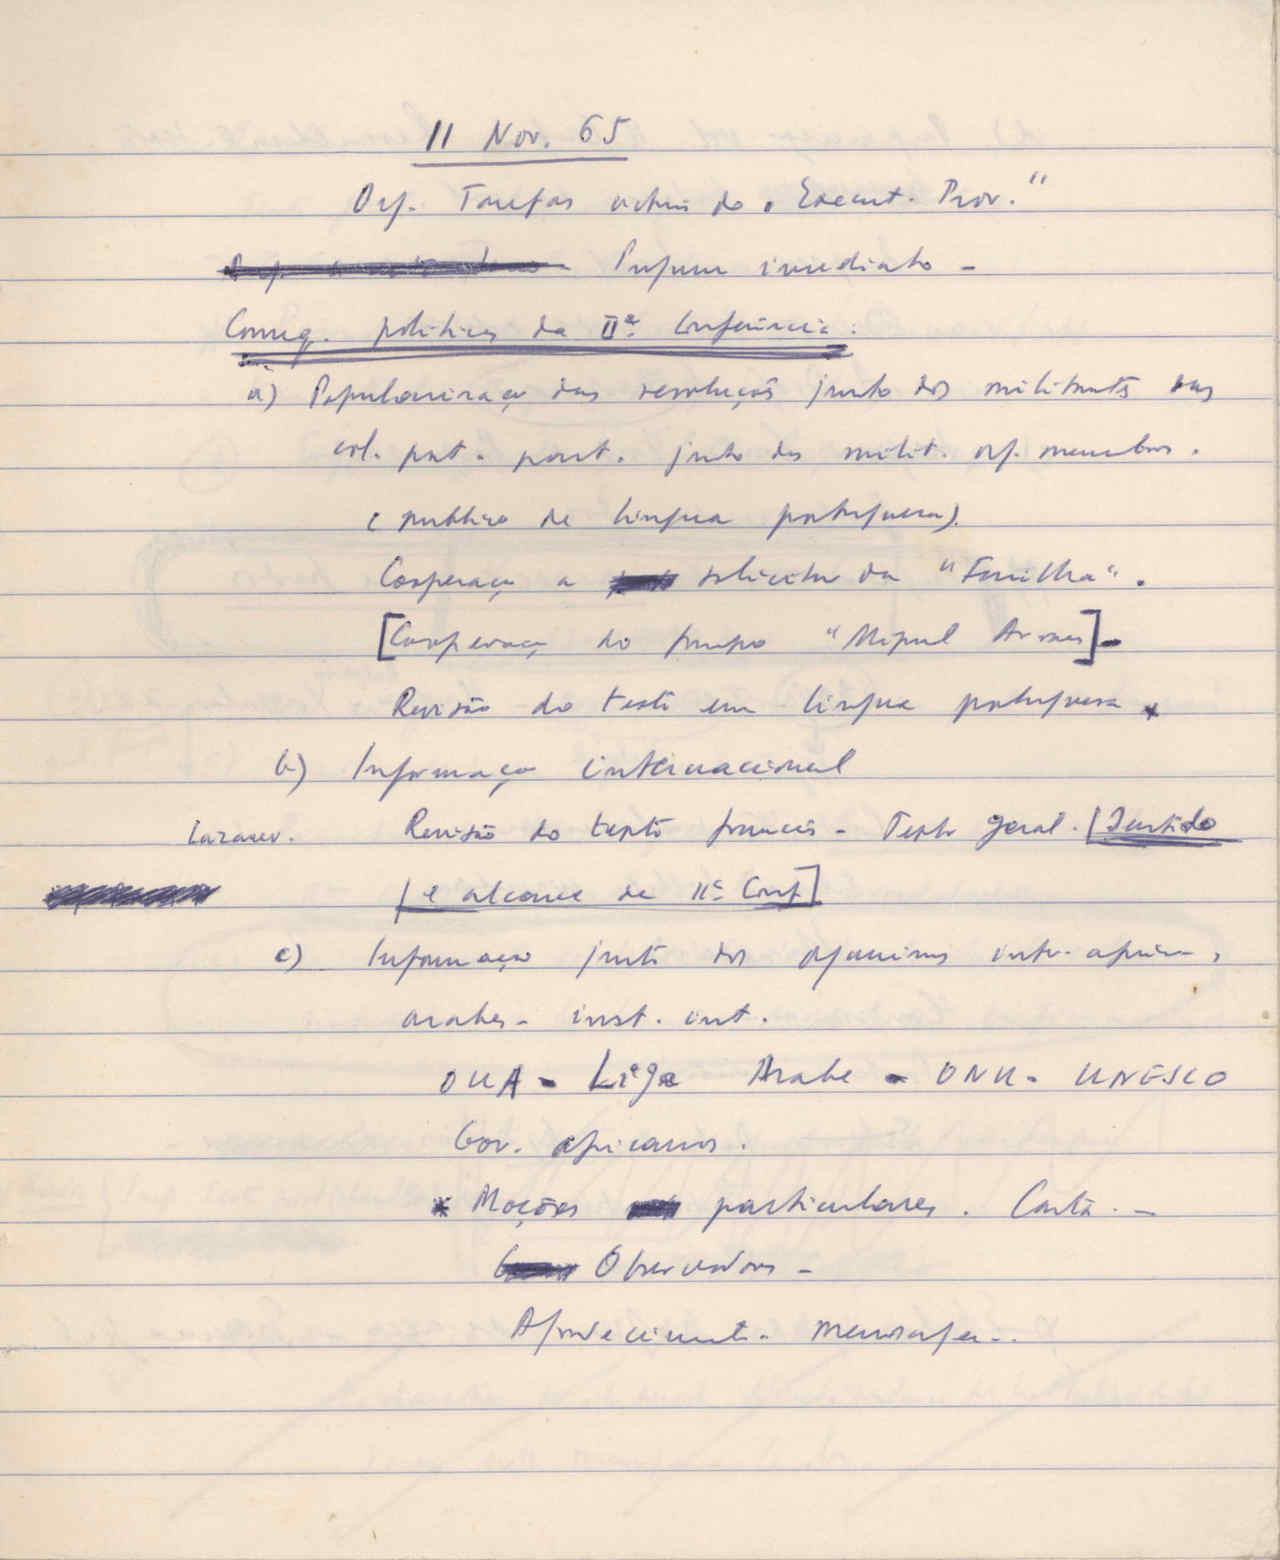 11 Nov. 65
Org. Tarefas actuais do "Execut. Prov."
Programa imediato -
Conseq. politicas da IIª Conferência:
a) Popularização das resoluções junto dos militantes nas
col. port. junto dos milit. org. membros.
(publico de lingua portuguesa).
Cooperação a solicitar da "Familha".
[Cooperação do grupo "Miguel Armas] -
Revisão do texto em lingua portuguesa *
b) Informação internacional
Lazarev. Revisão do texto francês - Texto geral. [Sentido
e alcance da IIª Conf]
c) Informação junto dos organismos inter-african,
arabes - inst. int.
OUA - Liga Arabe - ONU - UNESCO
Gov. africanos.
* Moções particulares. Carta. -
Observadores -
Agradeciment. mensagen..